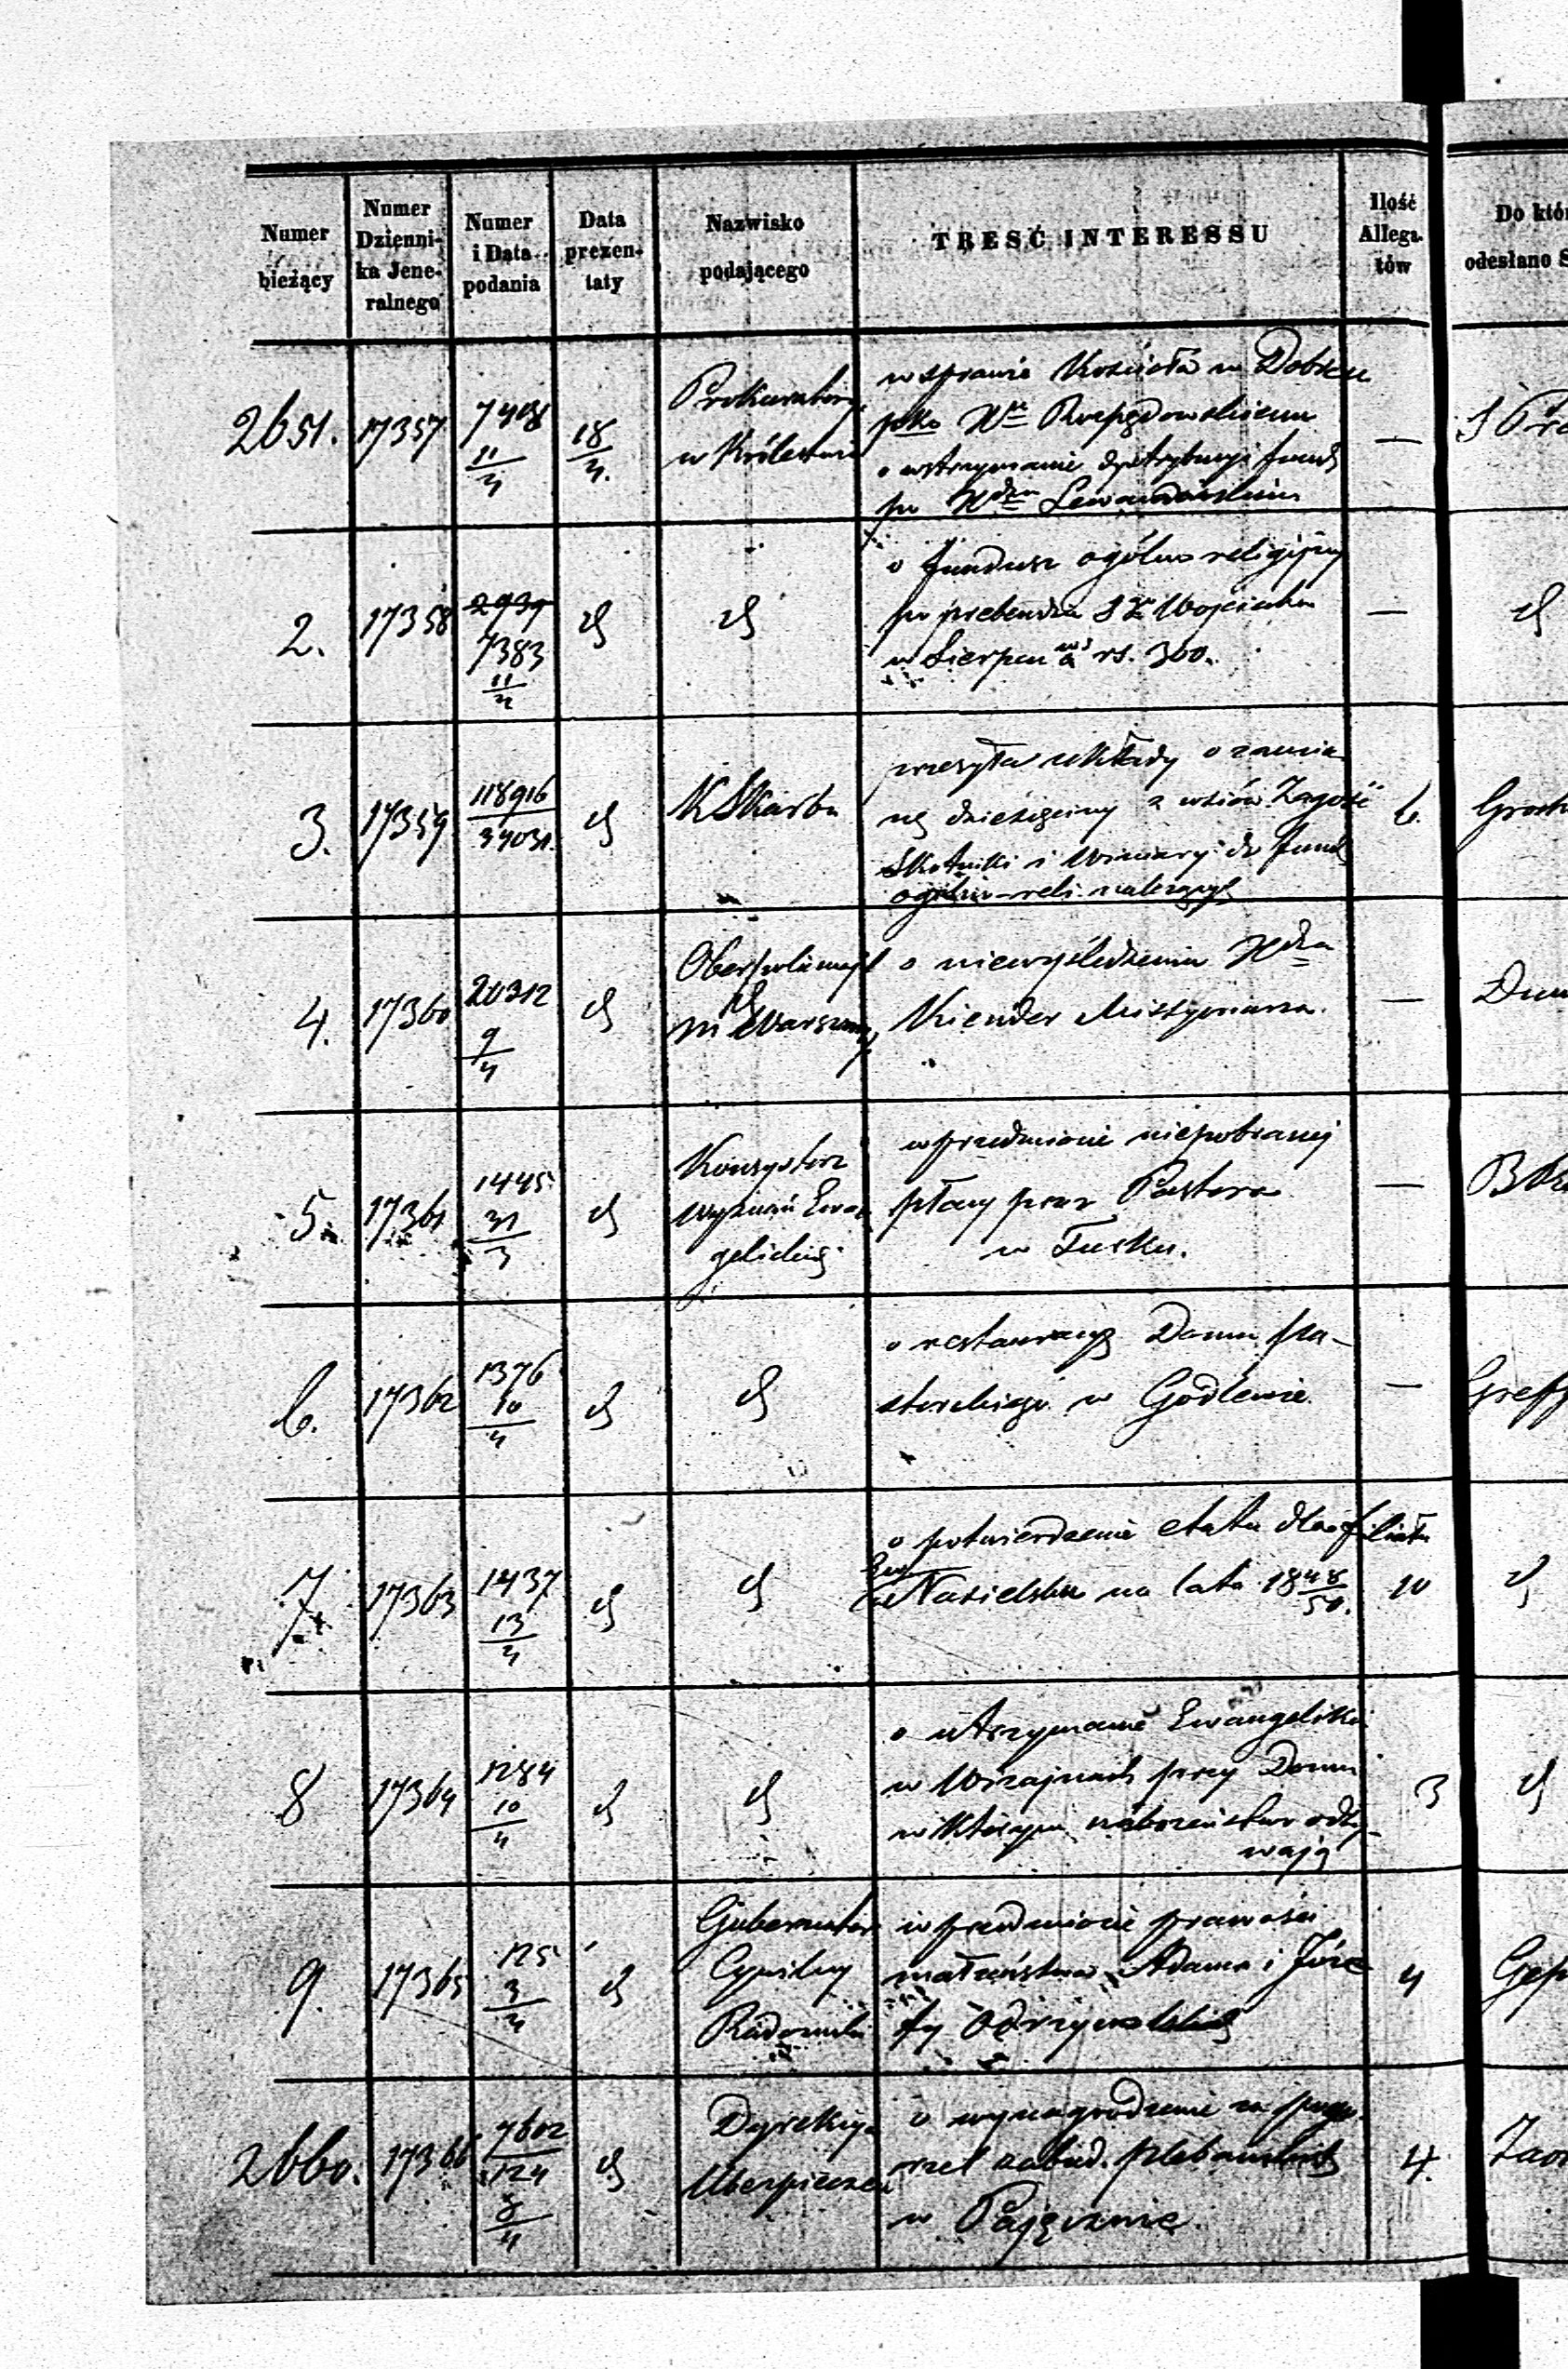 Numer bieżący
Numer Dzienni-ka Jene-ralnego
Numer i Data podania
Data prezen-taty
Nazwisko podającego
TREŚĆ INTERESSU
Ilość Allega-tów
Do któ
odesłano S
2651. 17357 7408 11/4 18/4.
Prokuratorya
w Królestwie
w sprawie Kościoła w
pko Xu
o wstrzymanie fund
po Xdzu Lewandowskim
—
2. 17358 7383 11/4 d d
o fundusz ogólno religijny
po prebendzie S Wojciecha
w Sierpcu rs. 300.
— d
3. 17359 118916/34031 d
K Skarbu
przesyła układy o zamia
nę dziesięciny z wsiów Zagość
Skotniki i Winiary do fund
ogólno-reli. należącej
6.
4. 17360 20312 9/4 d
Oberpolicmajst
m Warszawy
o niewyśledzeniu Xdza
Kiender Missyonarza.
—
5. 17361 1445 31/3 d
Konsystorz
wyznań Ewan
gelickiej
w przedmiocie niepobranej
płacy przez Pastora
w Turku.
—
6. 17362 1376 10/4 d d
o restauracyą Domu pa-
storskiego w Godlewie.
—
7. 17363 1437 13/4 d d
o potwierdzenie etatu dla filiału
Ew
w Nasielsku na lata 1848/50.
10 d
8 17364 1284 10/4 d d
o utrzymanie Ewangelika
w przy Domu
w którym nabożeństwo odby-
wają
3 d
9. 17365 125 3/4 d
Gubernator
Cywilny
Radomski
w przedmiocie prawości
małżeństwa Adama i Józe
fy
4
2660. 17366 7602/124 8/4 d
Dyrekcya
Ubezpieczeń
o wynagrodzenie za pogo-
rzel zabud. plebańskich
w Pajęcznie.
4.